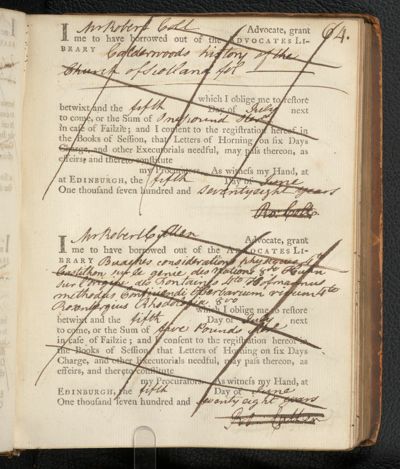 64.
I Mr Robert Advocate, grant
me to have borrowed out of the ADVOCATES LI-
BRARY Calderwoods history of the
Church of Scotland fol
which I oblige me to reſtore
betwixt and the fifth Day of July next
to come, or the Sum of One pound Sterl
In caſe of Failzie; and I conſent to the regiſtration hereof in
the Books of Seſſion, that Letters of Horning on ſix Days
Charge, and other Executorials needful, may paſs thereon, as
effeirs; and thereto conſtitute
my Procurators. As witneſs my Hand,
at EDINBURGH, the fifth Day of June
One thouſand ſeven hundred and Seventy eight years
I Mr Robert Cullen Advocate, grant
me to have borrowed out of the ADVOCATES LI-
BRARY considerations physiques 4to
genie des nations 8vo
sur l'origine des fontaines 4to Hofmannus
methodus Herbarium vivum 4to
8vo
which I oblige me to reſtore
betwixt and the fifth Day of July next
to come, or the Sum of five Pounds
in caſe of Failzie; and I conſent to the regiſtration hereof in
the Books of Seſſion that Letters of Horning on ſix Days
Charge, and other Executorials needful, may paſs thereon, as
effeirs, and thereto conſtitute
my Procurators. As witneſs my Hand, at
EDINBURGH, the fifth Day of June
One thouſand ſeven hundred and seventy eight years